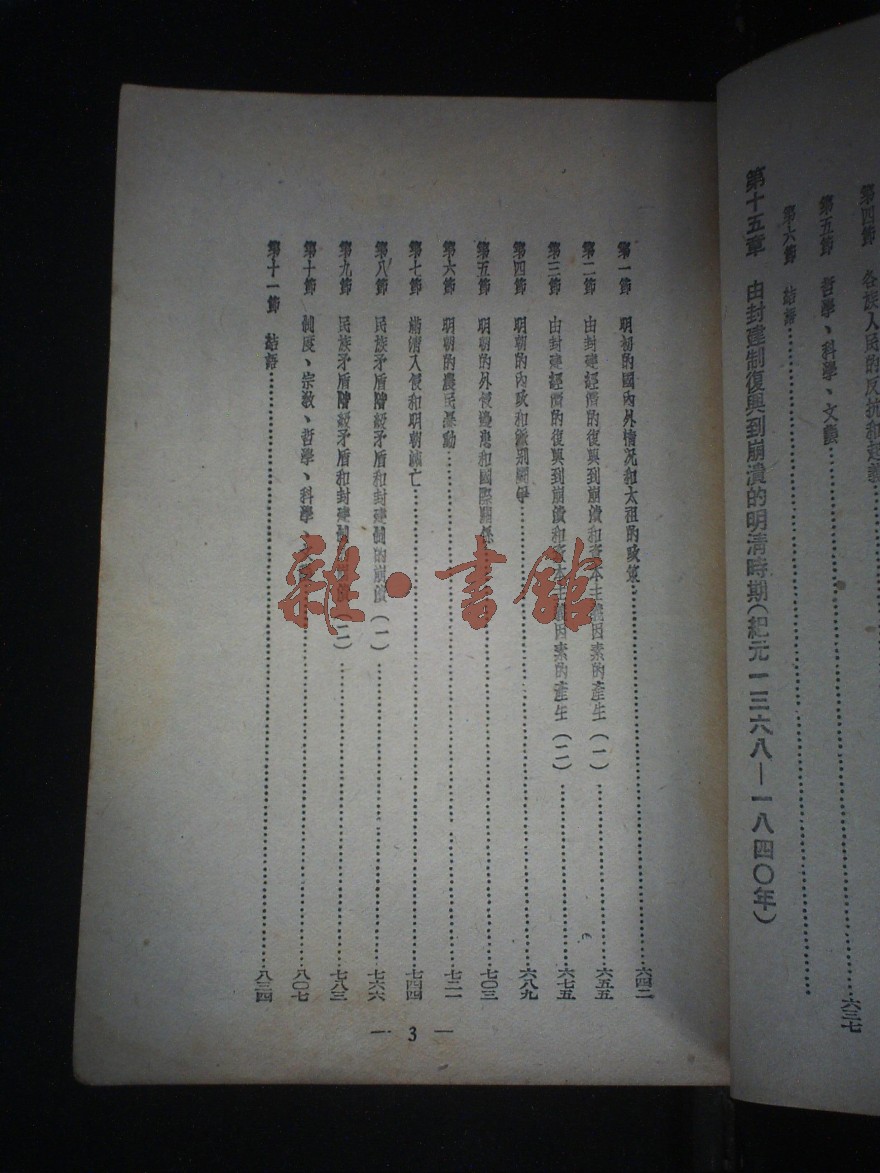 第四節 各族人民的反抗和起義
第五節 哲學、科學、文藝 六三七
第六節 結語
第十五章 由封建制復興到崩潰的明清時期(紀元一三六八—一八四〇年)
第一節 明初的國內外情況和太祖的政策 六四二
第二節 由封建經濟的復興到崩潰和資本主義因素的產生(一) 六五五
第三節 由封建經濟的復興到崩潰和資本主義因素的產生(二) 六七五
第四節 明朝的內政和派別鬪爭 六八九
第五節 明朝的外侵邊患和國際關係 七〇三
第六節 明朝的農民暴動 七二一
第七節 滿清入侵和明朝滅亡 七四四
第八節 民族矛盾階級矛盾和封建制的崩潰(一) 七六六
第九節 民族矛盾階級矛盾和封建制的崩潰(二) 七八三
第十節 制度、宗敎、哲學、科學、 八〇七
第十一節 結語 八三四
— 3 —
雜·書館